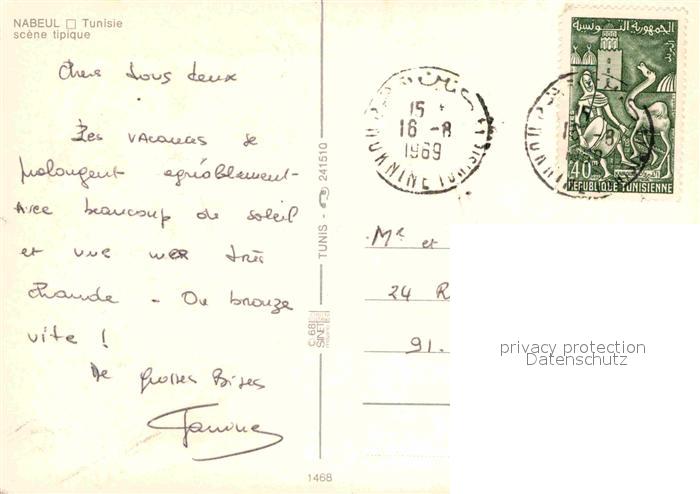 NABEUL □ Tunisie
scène tipique
Chers tous deux
Les vacances se
prolongent agréablement-
Avec beaucoup de soleil
et une mer très
chaude - On bronze
vite !
De grosses Bises
Janine
TUNIS - 241510
© 68
1468
15
16 -8
1969
HUNKNINE
الجمهورية التونسية
40
REPUBLIQUE TUNISIENNE
Mr et
24 R
91.
privacy protection
Datenschutz